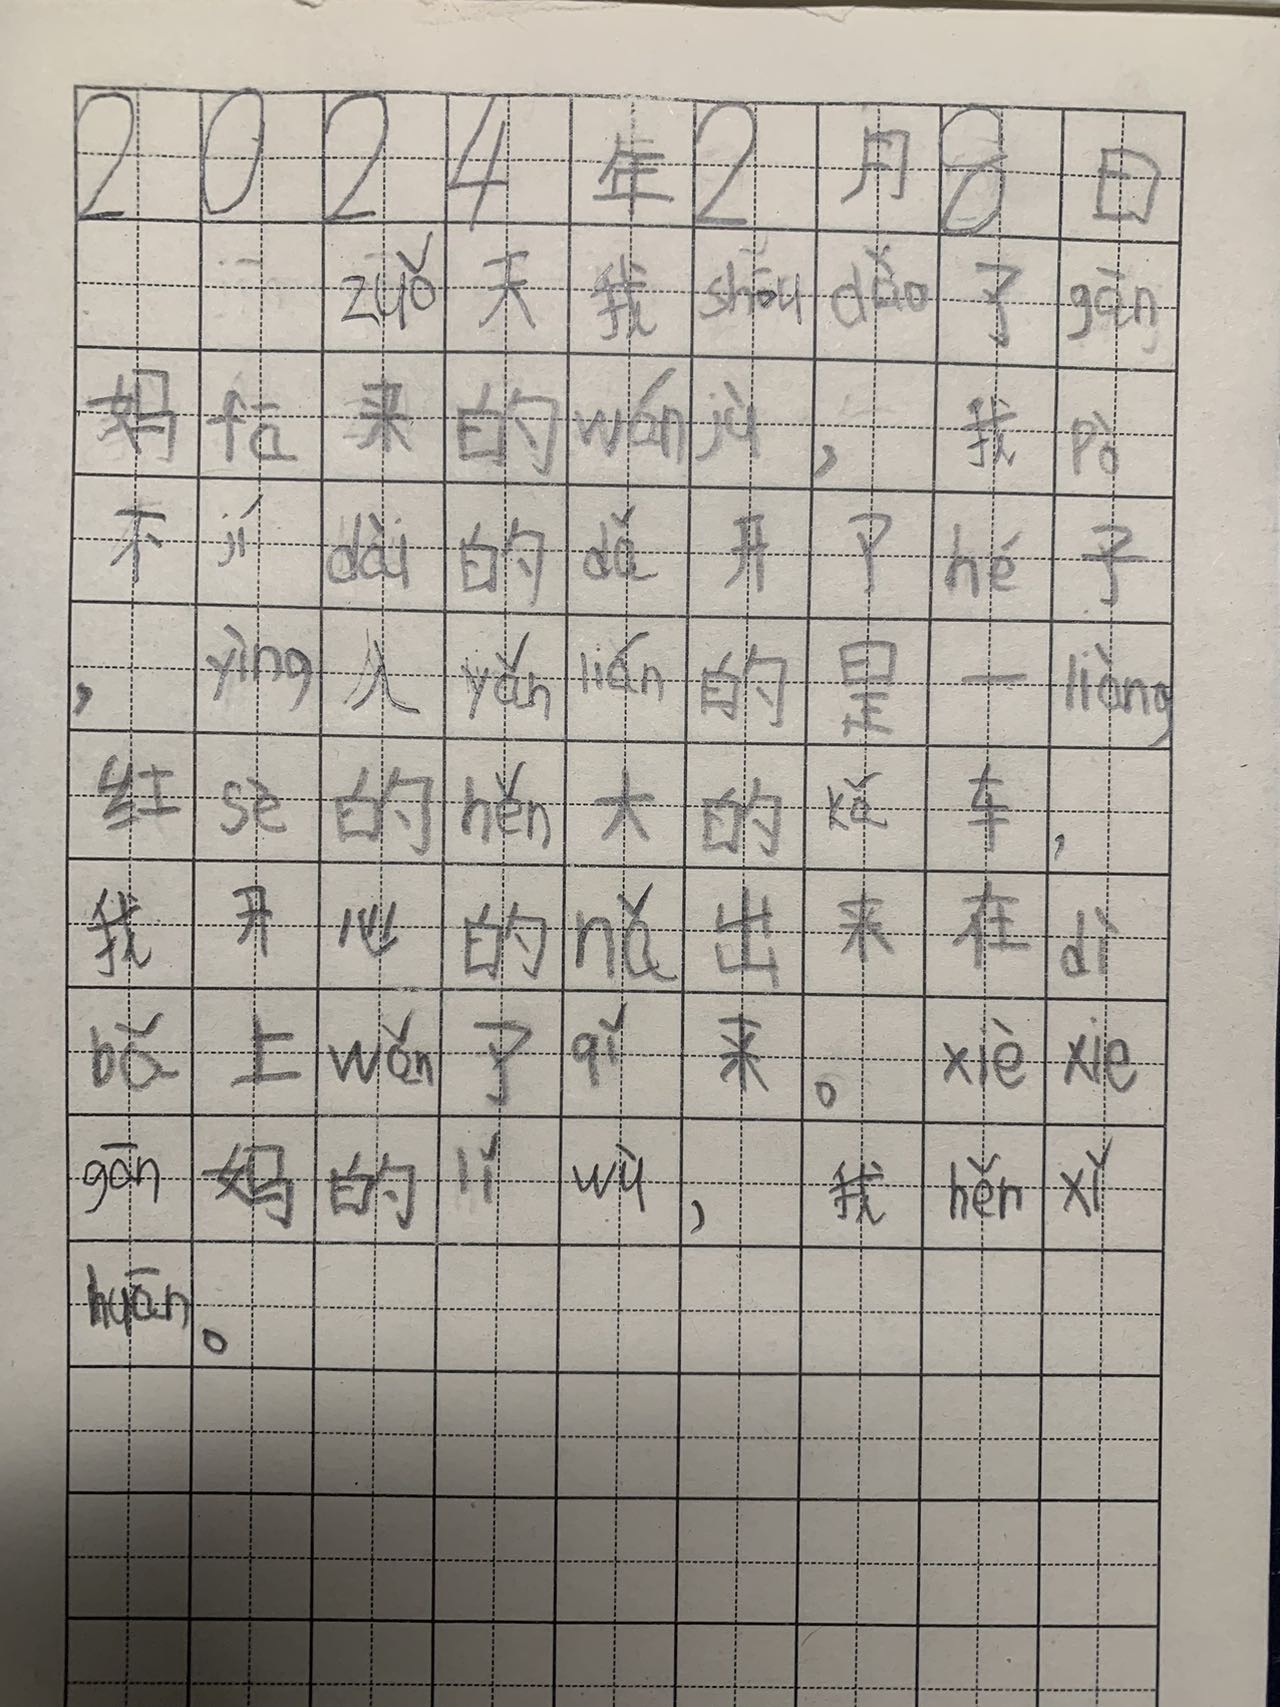 2024年2月8日
zuǒ天我shōu dǎo了gān
妈fā来的wán jù，我pò
不jí dài的dǎ开了hé子
，yìng入yǎn lián的是一liàng
红sè的hěn大的kǎ车，
我开心的ná出来在dì
bǎ上wǎn了qǐ来。xiè xie
gān妈的lǐ wù，我hěn xǐ
huān。